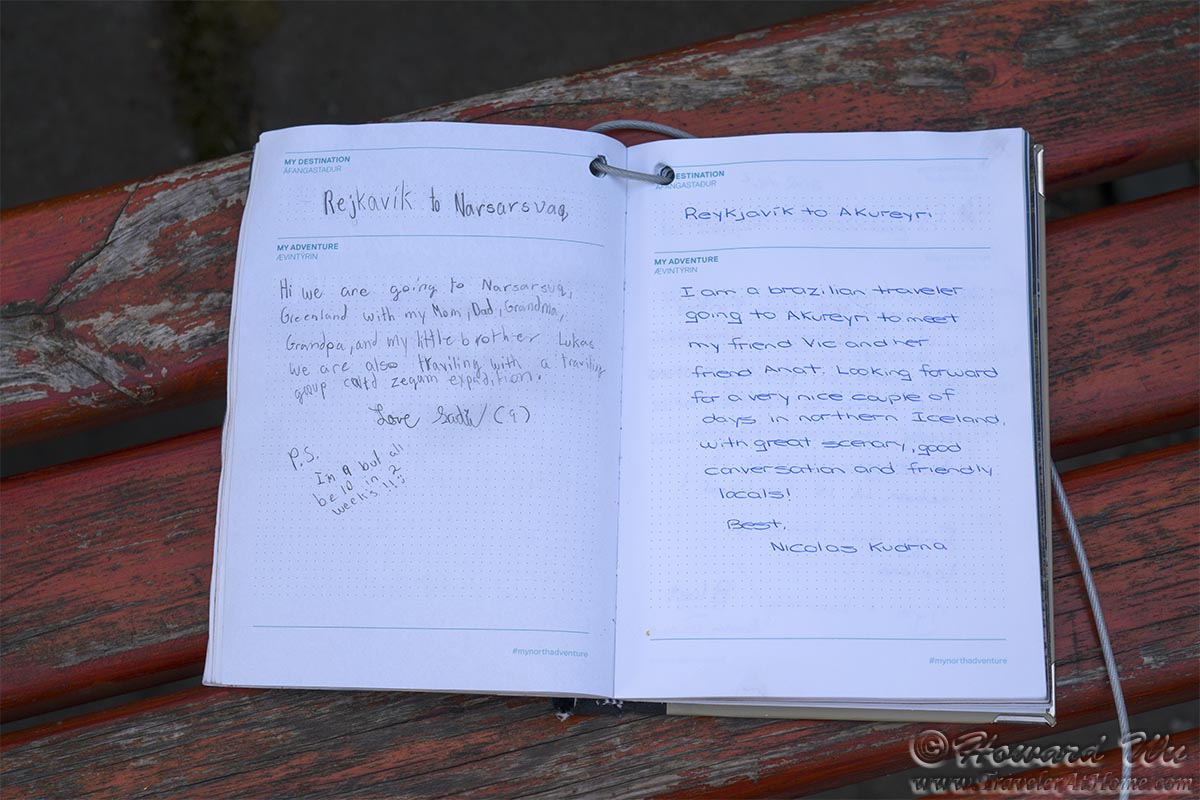 MY DESTINATION
ÁFANGASTAÐUR
Rejkavík to Narsarsvaq,
MY ADVENTURE
ÆVINTÝRIN
Hi we are going to Narsarsuq,
Greenland with my Mom, Dad, Grandma,
Grandpa, and my little brother Lukas
we are also traviling with a traviling
group calld zegum expedition.
Love (9)
P.S.
I'm 9 but all
be 10 in 2
weeks!!
#mynorthadventure
DESTINATION
ÁFANGASTAÐUR
Reykjavík to Akureyri
MY ADVENTURE
ÆVINTÝRIN
I am a brazilian traveler
going to Akureyri to meet
my friend Vic and her
friend Anat. Looking forward
for a very nice couple of
days in northern Iceland,
with great scenary, good
conversation and friendly
locals!
Best,
Nicolas Kudrna
#mynorthadventure
© Howard Wu
www.TravelerAtHome.com